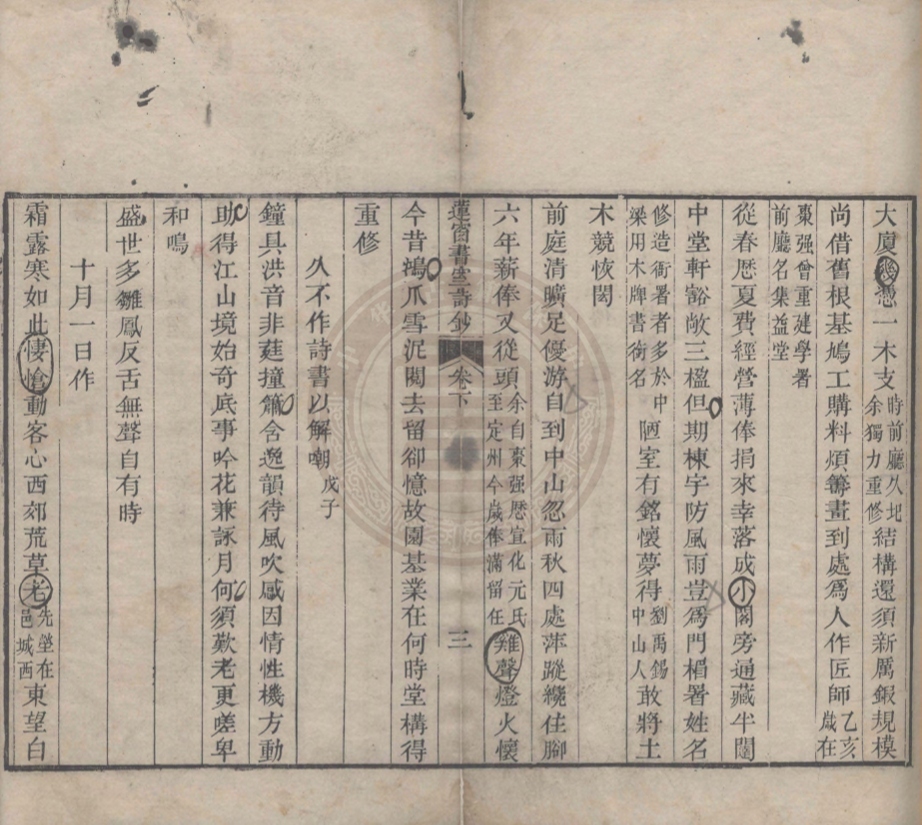 大廈幾憑一木支時前廳久圯余獨力重修結構還須新厲鍛規模
尚借舊根基鳩工購料煩籌畫到處爲人作匠師乙亥歲在
棗强曾重建學署前廳名集益堂
從春厯夏費經營薄俸捐來幸落成小閣旁通藏半闥
中堂軒豁敞三楹但期棟宇防風雨豈爲門楣署姓名
修造衙署者多於中梁用木牌書銜名陋室有銘懷夢得劉禹錫中山人敢將土
木競恢閎
前庭清曠足優游自到中山忽兩秋四處萍蹤纔住腳
六年薪俸又從頭余自棗强厯宣化元氏至定州今歲俸滿留任雞聲燈火懷
蓮窗書室詩鈔 卷下 三
今昔鴻爪雪泥閱去留卻憶故園基業在何時堂構得
重修
久不作詩書以解嘲戊子
鐘具洪音非莛撞簫含逸韻待風吹感因情性機方動
助得江山境始奇底事吟花兼詠月何須歎老更嗟卑
和鳴
盛世多雛鳳反舌無聲自有時
十月一日作
霜露寒如此悽愴動客心西郊荒草老先塋在邑城西東望白